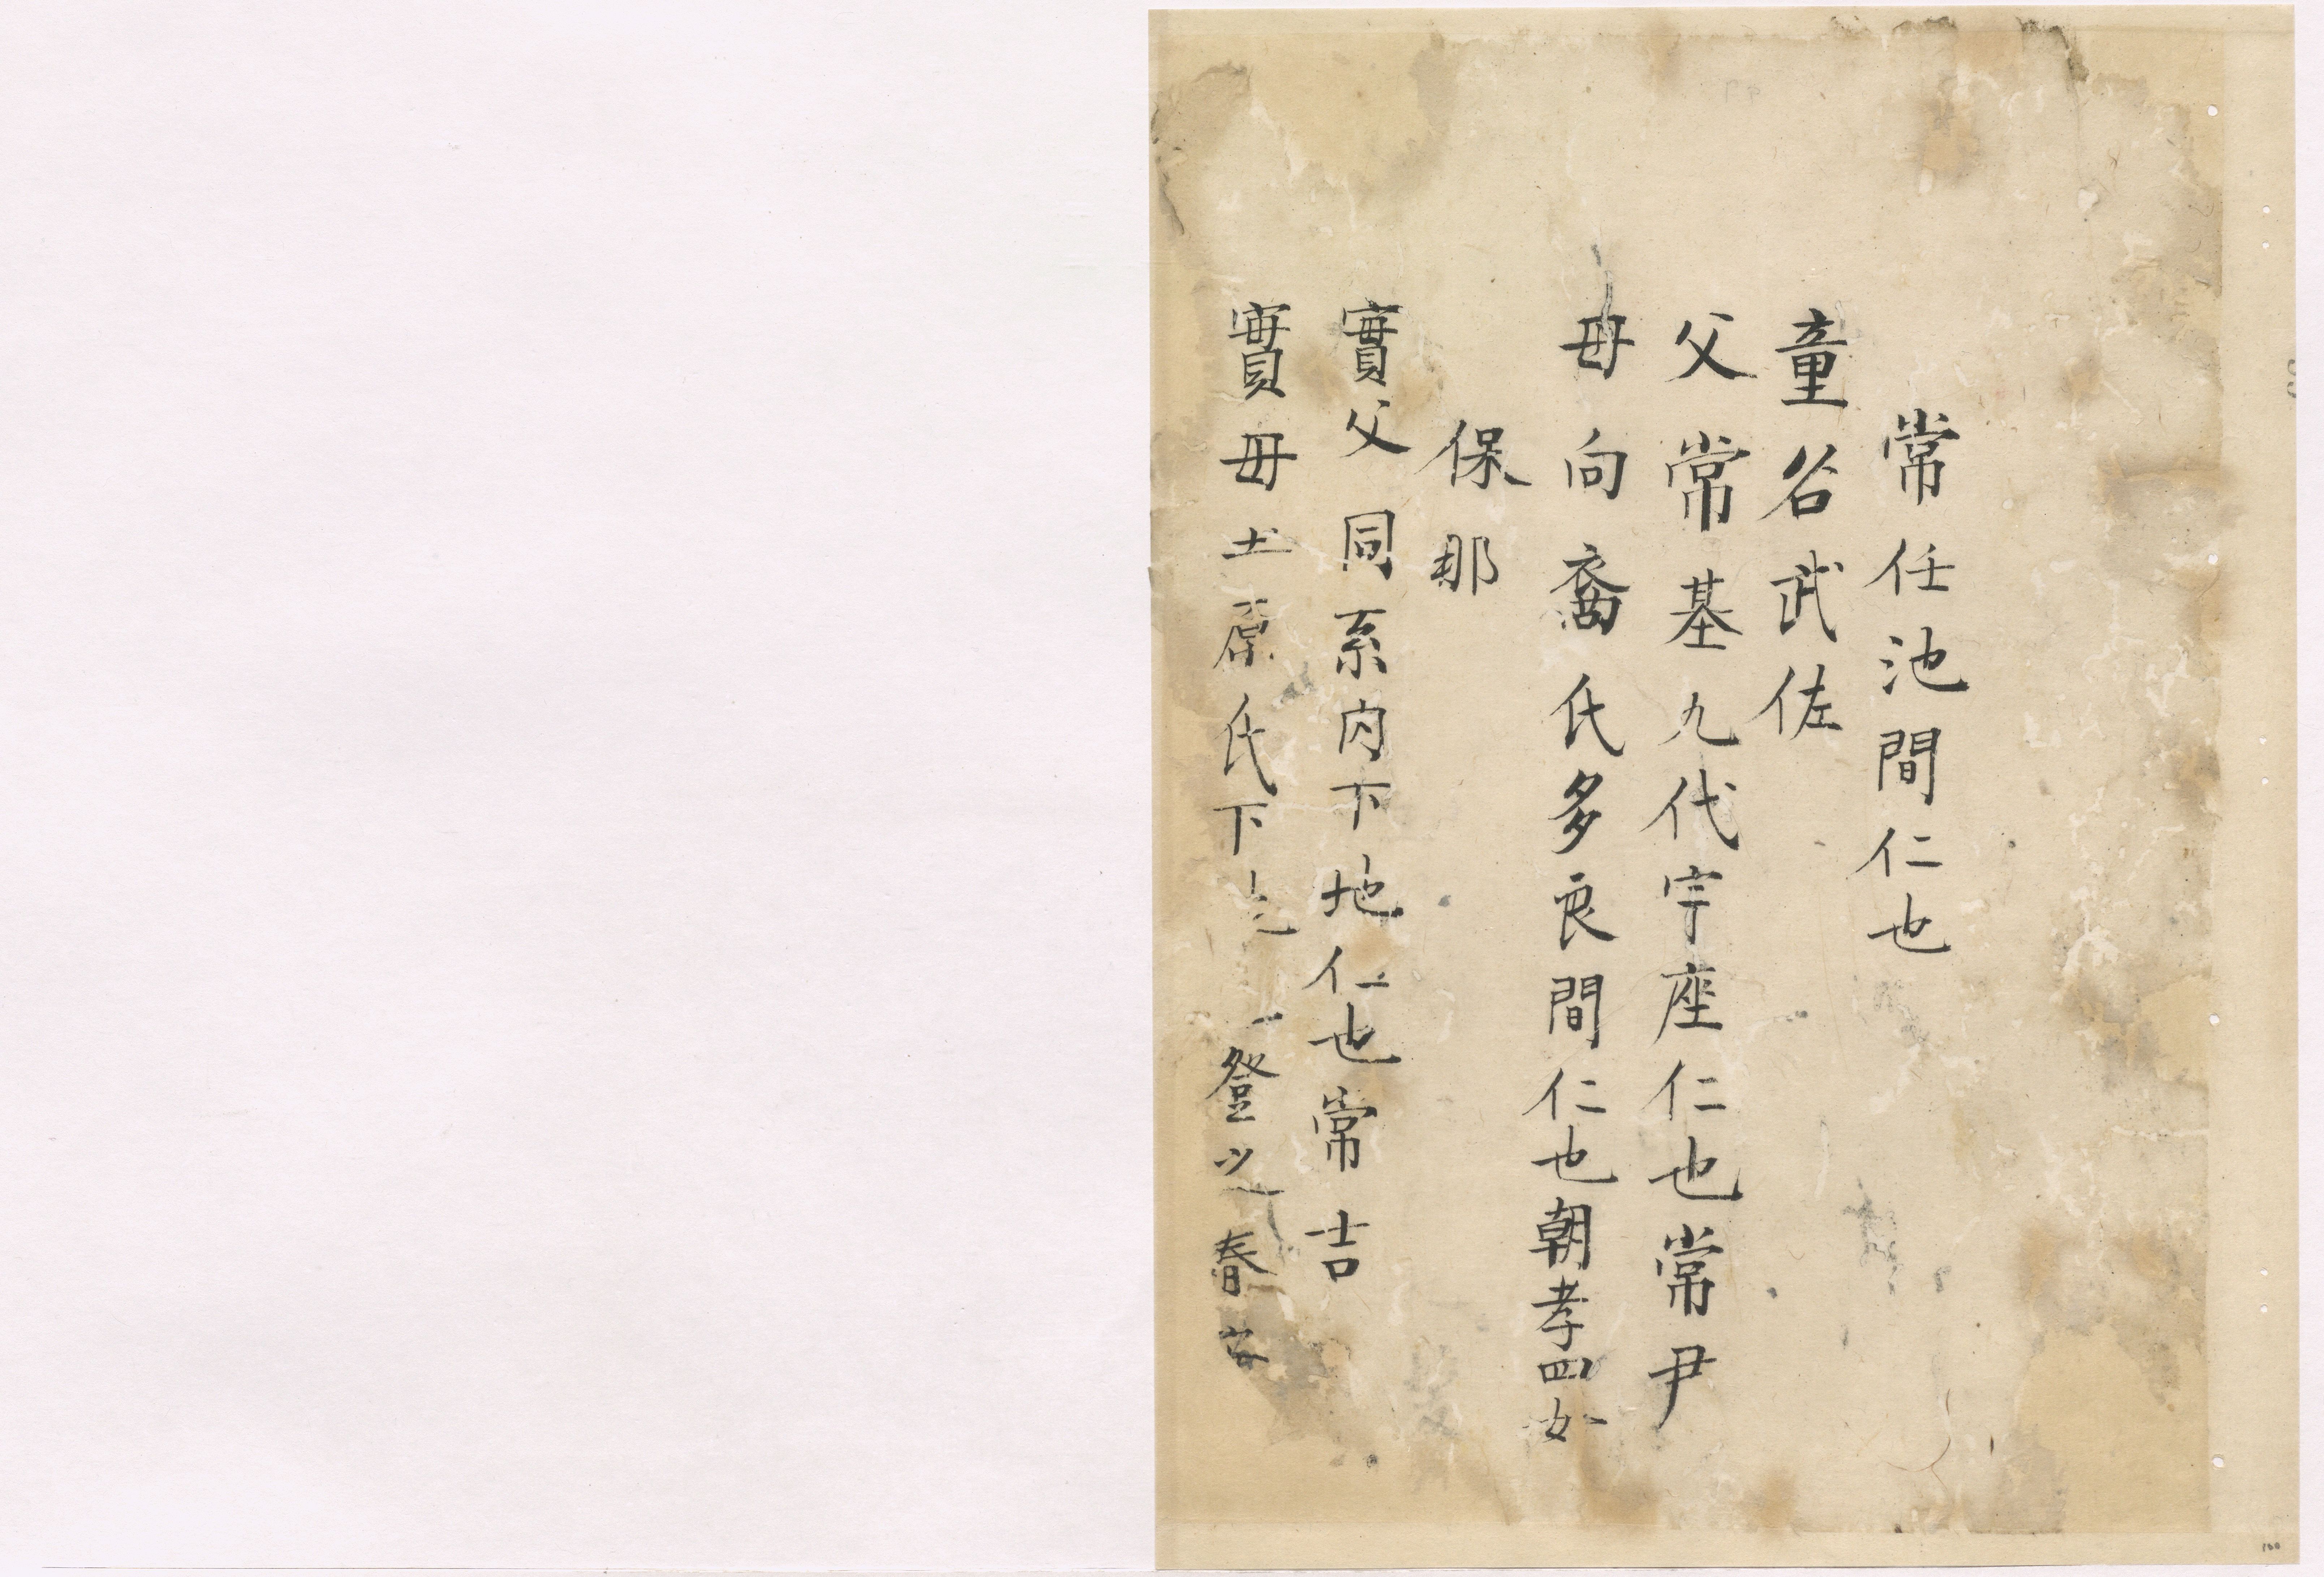 常任池間仁也
童名武佐
父常基九代宇座仁也常尹
母向裔氏多良間仁也朝孝四女
保那
實父同系内下地仁也常吉
實母土原氏下地登之春
100